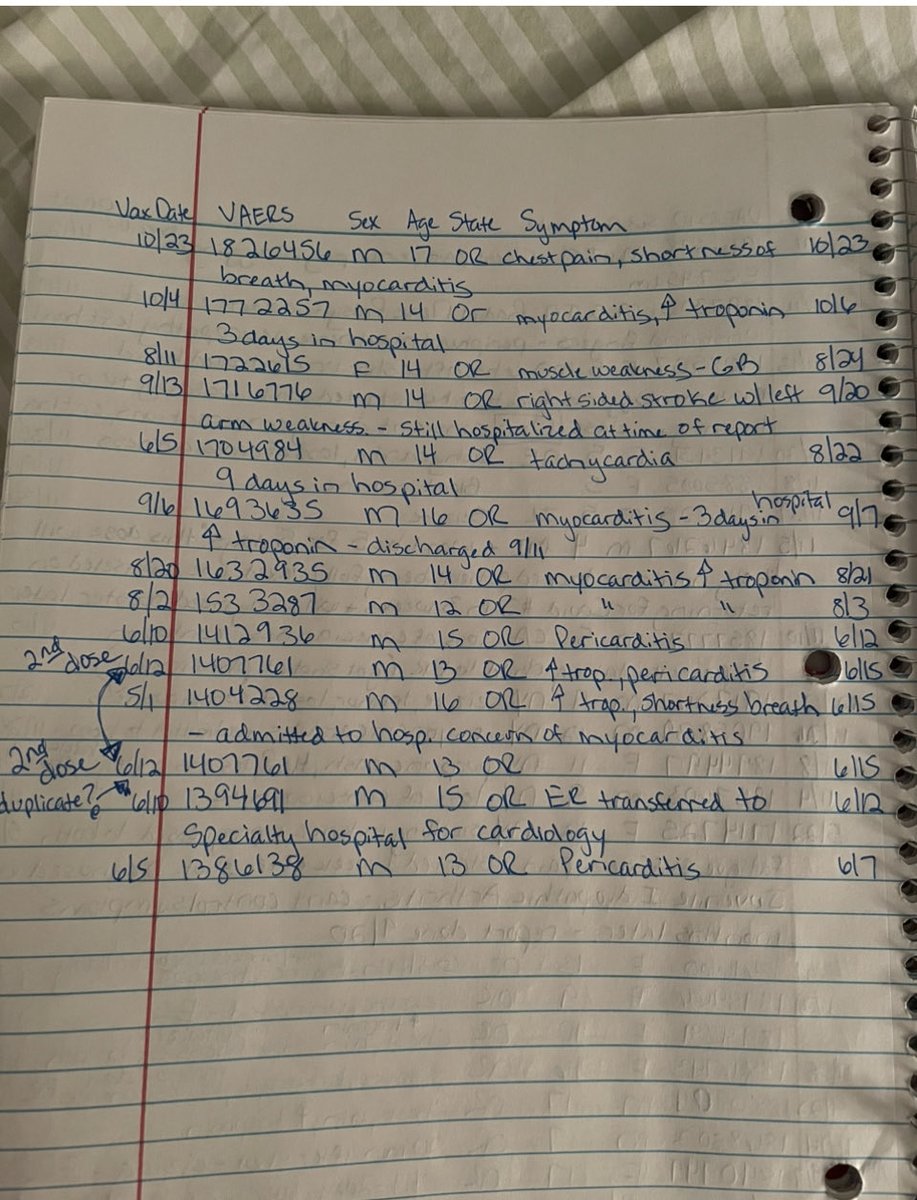 Vax Date VAERS Sex Age State Symptom
10/23 1826456 m 17 OR chest pain, shortness of 10/23
breath, myocarditis
10/4 1772257 m 14 Or myocarditis, ↑ troponin 10/6
3 days in hospital
8/11 1722615 F 14 OR muscle weakness - GB 8/24
9/13 1716776 m 14 OR right sided stroke w/ left 9/20
arm weakness - still hospitalized at time of report
6/5 1704984 m 14 OR tachycardia 8/22
9 days in hospital
9/6 1693635 m 16 OR myocarditis - 3 days in hospital 9/7
↑ troponin - discharged 9/11
8/20 1632935 m 14 OR myocarditis ↑ troponin 8/21
8/2 1533287 m 12 OR " " 8/3
6/10 1412936 m 15 OR Pericarditis 6/12
2nd dose 6/12 1407761 m 13 OR ↑ trop., pericarditis 6/15
5/1 1404228 m 16 OR ↑ trop., shortness breath 6/15
- admitted to hosp. concern of myocarditis
2nd dose 6/12 1407761 m 13 OR 6/15
duplicate? 6/10 1394691 m 15 OR ER transferred to 6/12
Specialty hospital for cardiology
6/5 1386138 m 13 OR Pericarditis 6/7